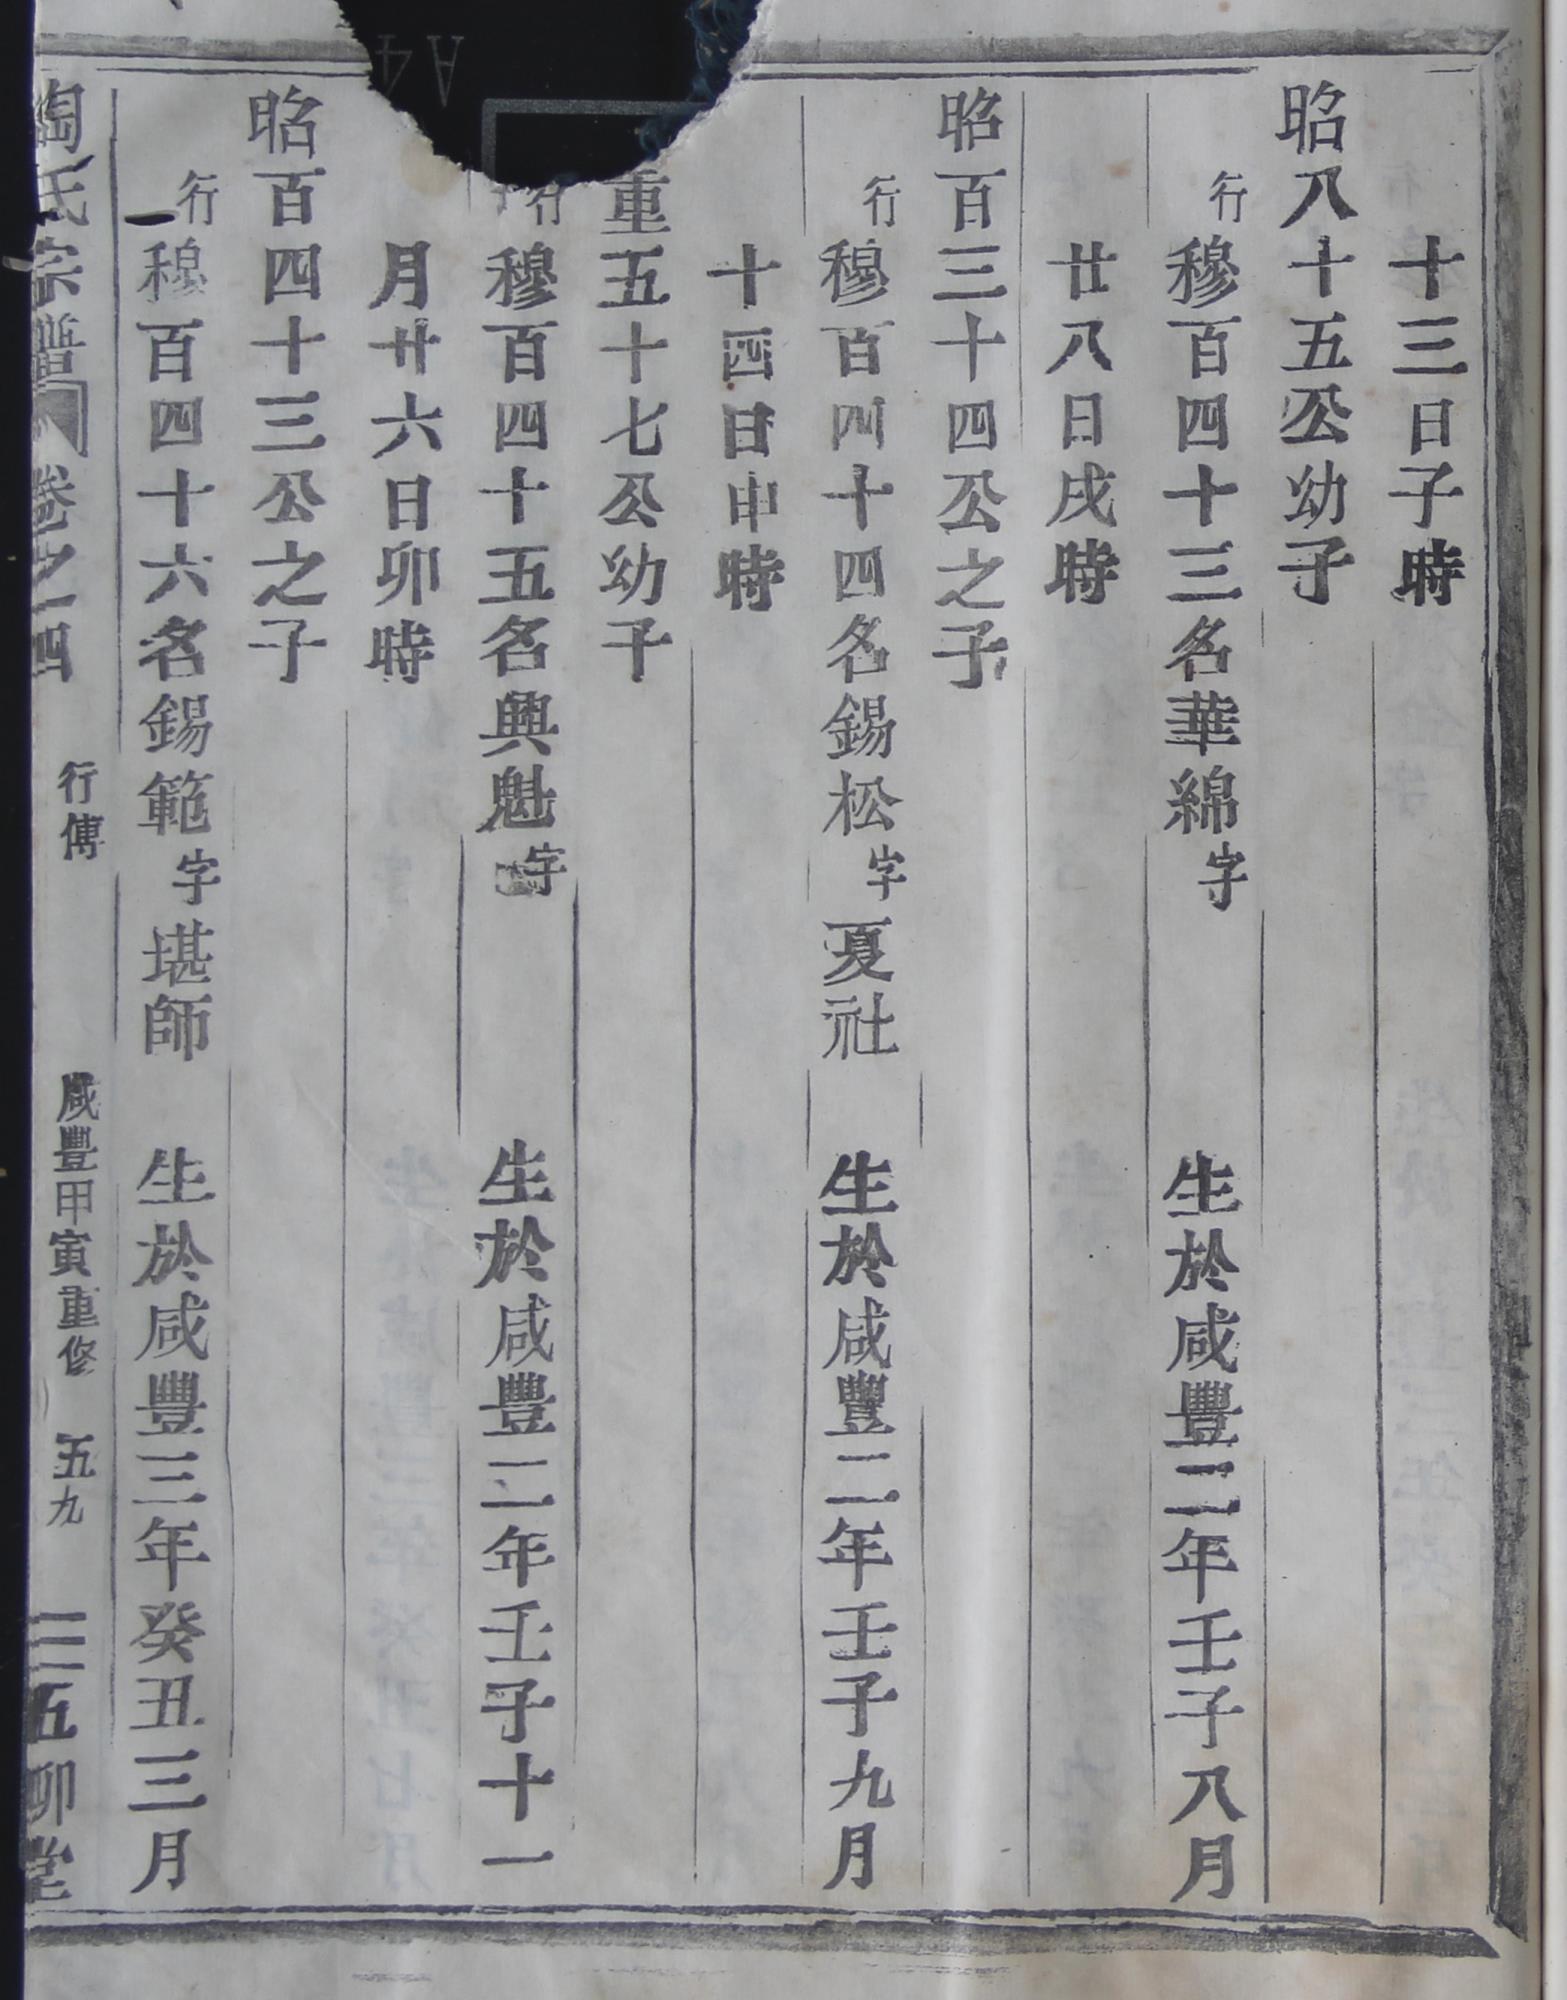 十三日子時
昭八十五公幼子
行穆百四十三名華綿字 生於咸豐二年壬子八月
廿八日戌時
昭百三十四公之子
行穆百四十四名錫松字夏社 生於咸豐二年壬子九月
十四日申時
重五十七公幼子
行穆百四十五名興魁字 生於咸豐二年壬子十一
月廿六日卯時
昭百四十三公之子
行穆百四十六名錫範字堪師 生於咸豐三年癸丑三月
陶氏宗譜 卷之十四 行傳 咸豐甲寅重修 五九 五柳堂
A4